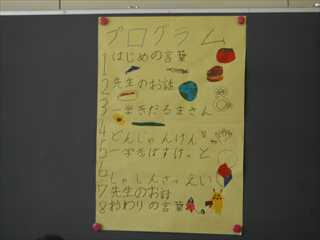 プログラム
1 はじめの言葉
2 先生のお話
3 一学きだるまさん
4 どんじゃんけん
5 一学きばすけっと
6 しゃしんさつえい
7 先生のお話
8 おわりの言葉